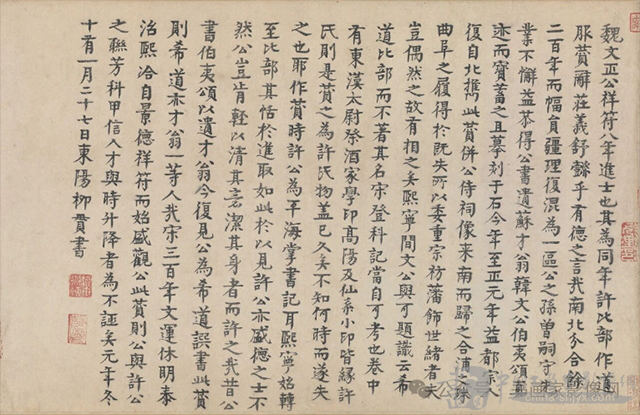 魏文正公祥符八年進士也其為同年許比部作道
服贊辭莊義舒繇乎有德之言哉南北分合餘
二百年而幅員疆理復混為一區公之孫曾嗣守素
業不懈益恭得公書遺蘇才翁韓文公伯夷頌真
迹而寶蓄之且摹刻于石今年至正元年益都宗人
復自北攜此贊併公侍祠像来南而歸之合浦之珠
曲阜之履得於既失所以委重宗祊藩飾世緒者夫
豈偶然之故有相之矣熙寧間文公與可題識云希
道比部而不著其名宋登科記當自可考也卷中
有東漢太尉祭酒家學印高陽及仙系小印皆緣許
氏則是贊之為許氏物蓋已久矣不知何時而遂失
之也耶作贊時許公為平海掌書記耳熙寧始轉
至比部其恬於進取如此於以見許公亦盛德之士不
然公豈肯輕以清其意潔其身者而許之哉昔公
書伯夷頌以遺才翁今復見公為希道譔書此贊
則希道亦才翁一等人哉宋三百年文運休明泰
治熙洽自景德祥符而始盛觀公此贊則公與許公
之聯芳科甲信人才與時升降者為不誣矣元年冬
十有一月二十七日東陽柳貫書